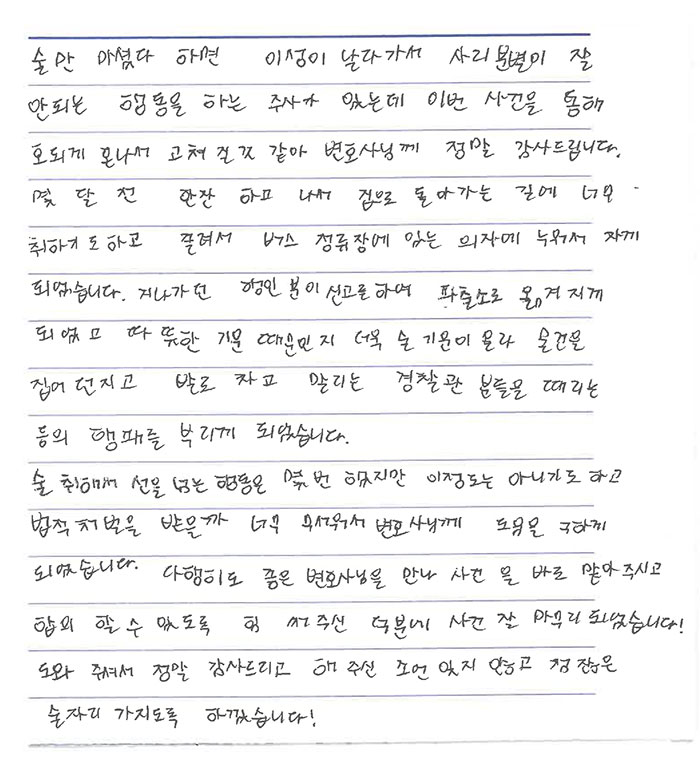 술만 마셨다 하면 이성이 날라가서 사리분별이 잘
안되는 행동을 하는 주사가 있는데 이번 사건을 통해
호되게 혼나서 고쳐진것 같아 변호사님께 정말 감사드립니다.
몇 달 전 한잔 하고 나서 집으로 돌아가는 길에 너무
취하기도하고 졸려서 버스 정류장에 있는 의자에 누워서 자게
되었습니다. 지나가던 행인 분이 신고를 하여 파출소로 옮겨지게
되었고 따뜻한 기운 때문인지 더욱 술 기운이 올라 물건을
집어 던지고 발로 차고 말리는 경찰관 분들을 때리는
등의 행패를 부리게 되었습니다.
술 취해서 선을 넘는 행동은 몇 번 했지만 이정도는 아니기도 하고
법적처벌을 받을까 너무 무서워서 변호사님께 도움을 구하게
되었습니다. 다행히도 좋은 변호사님을 만나 사건 을 바로 맡아주시고
합의 할 수 있도록 힘 써주신 덕분에 사건 잘 마무리 되었습니다!
도와 주셔서 정말 감사드리고 해 주신 조언 잊지 않고 점잖은
술자리 가지도록 하겠습니다!